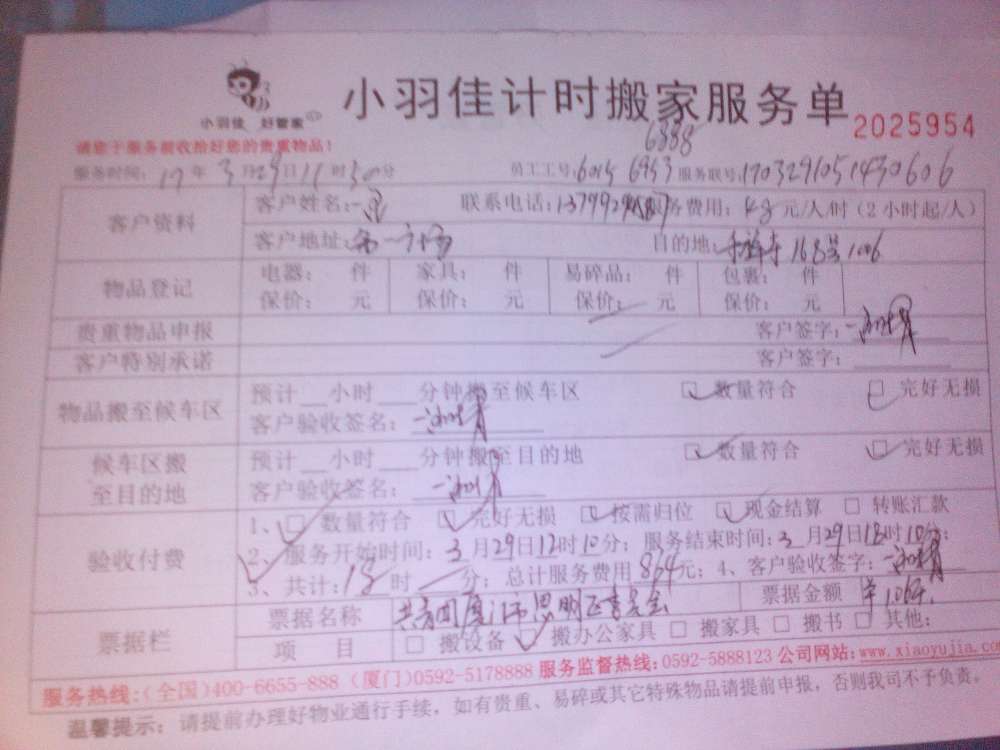 小羽佳 好管家
小羽佳计时搬家服务单
2025954
请您于服务前收拾好您的贵重物品！
6888
服务时间：17年3月29日11时50分 员工工号：6015 6953 服务联号：1703291051430606
客户资料
客户姓名： 联系电话： 服务费用：48元/人/时（2小时起/人）
客户地址： 目的地： 168号1006
物品登记
电器： 件 家具： 件 易碎品： 件 包裹： 件
保价： 元 保价： 元 保价： 元 保价： 元
贵重物品申报 客户签字：
客户特别承诺 客户签字：
物品搬至候车区
预计__小时___分钟搬至候车区 数量符合 完好无损
客户验收签名：
候车区搬至目的地
预计__小时___分钟搬至目的地 数量符合 完好无损
客户验收签名：
验收付费
1、 数量符合 完好无损 按需归位 现金结算 转账汇款
2、服务开始时间：3月29日12时10分；服务结束时间：3月29日18时10分；
3、共计：18时 分；总计服务费用864元；4、客户验收签字：
票据栏
票据名称 共青团厦门市思明区委员会 票据金额 ¥1064.
项 目 搬设备 搬办公家具 搬家具 搬书 其他：
服务热线：（全国）400-6655-888（厦门）0592-5178888 服务监督热线：0592-5888123 公司网站：www.xiaoyujia.com
温馨提示：请提前办理好物业通行手续，如有贵重、易碎或其它特殊物品请提前申报，否则我司不予负责。